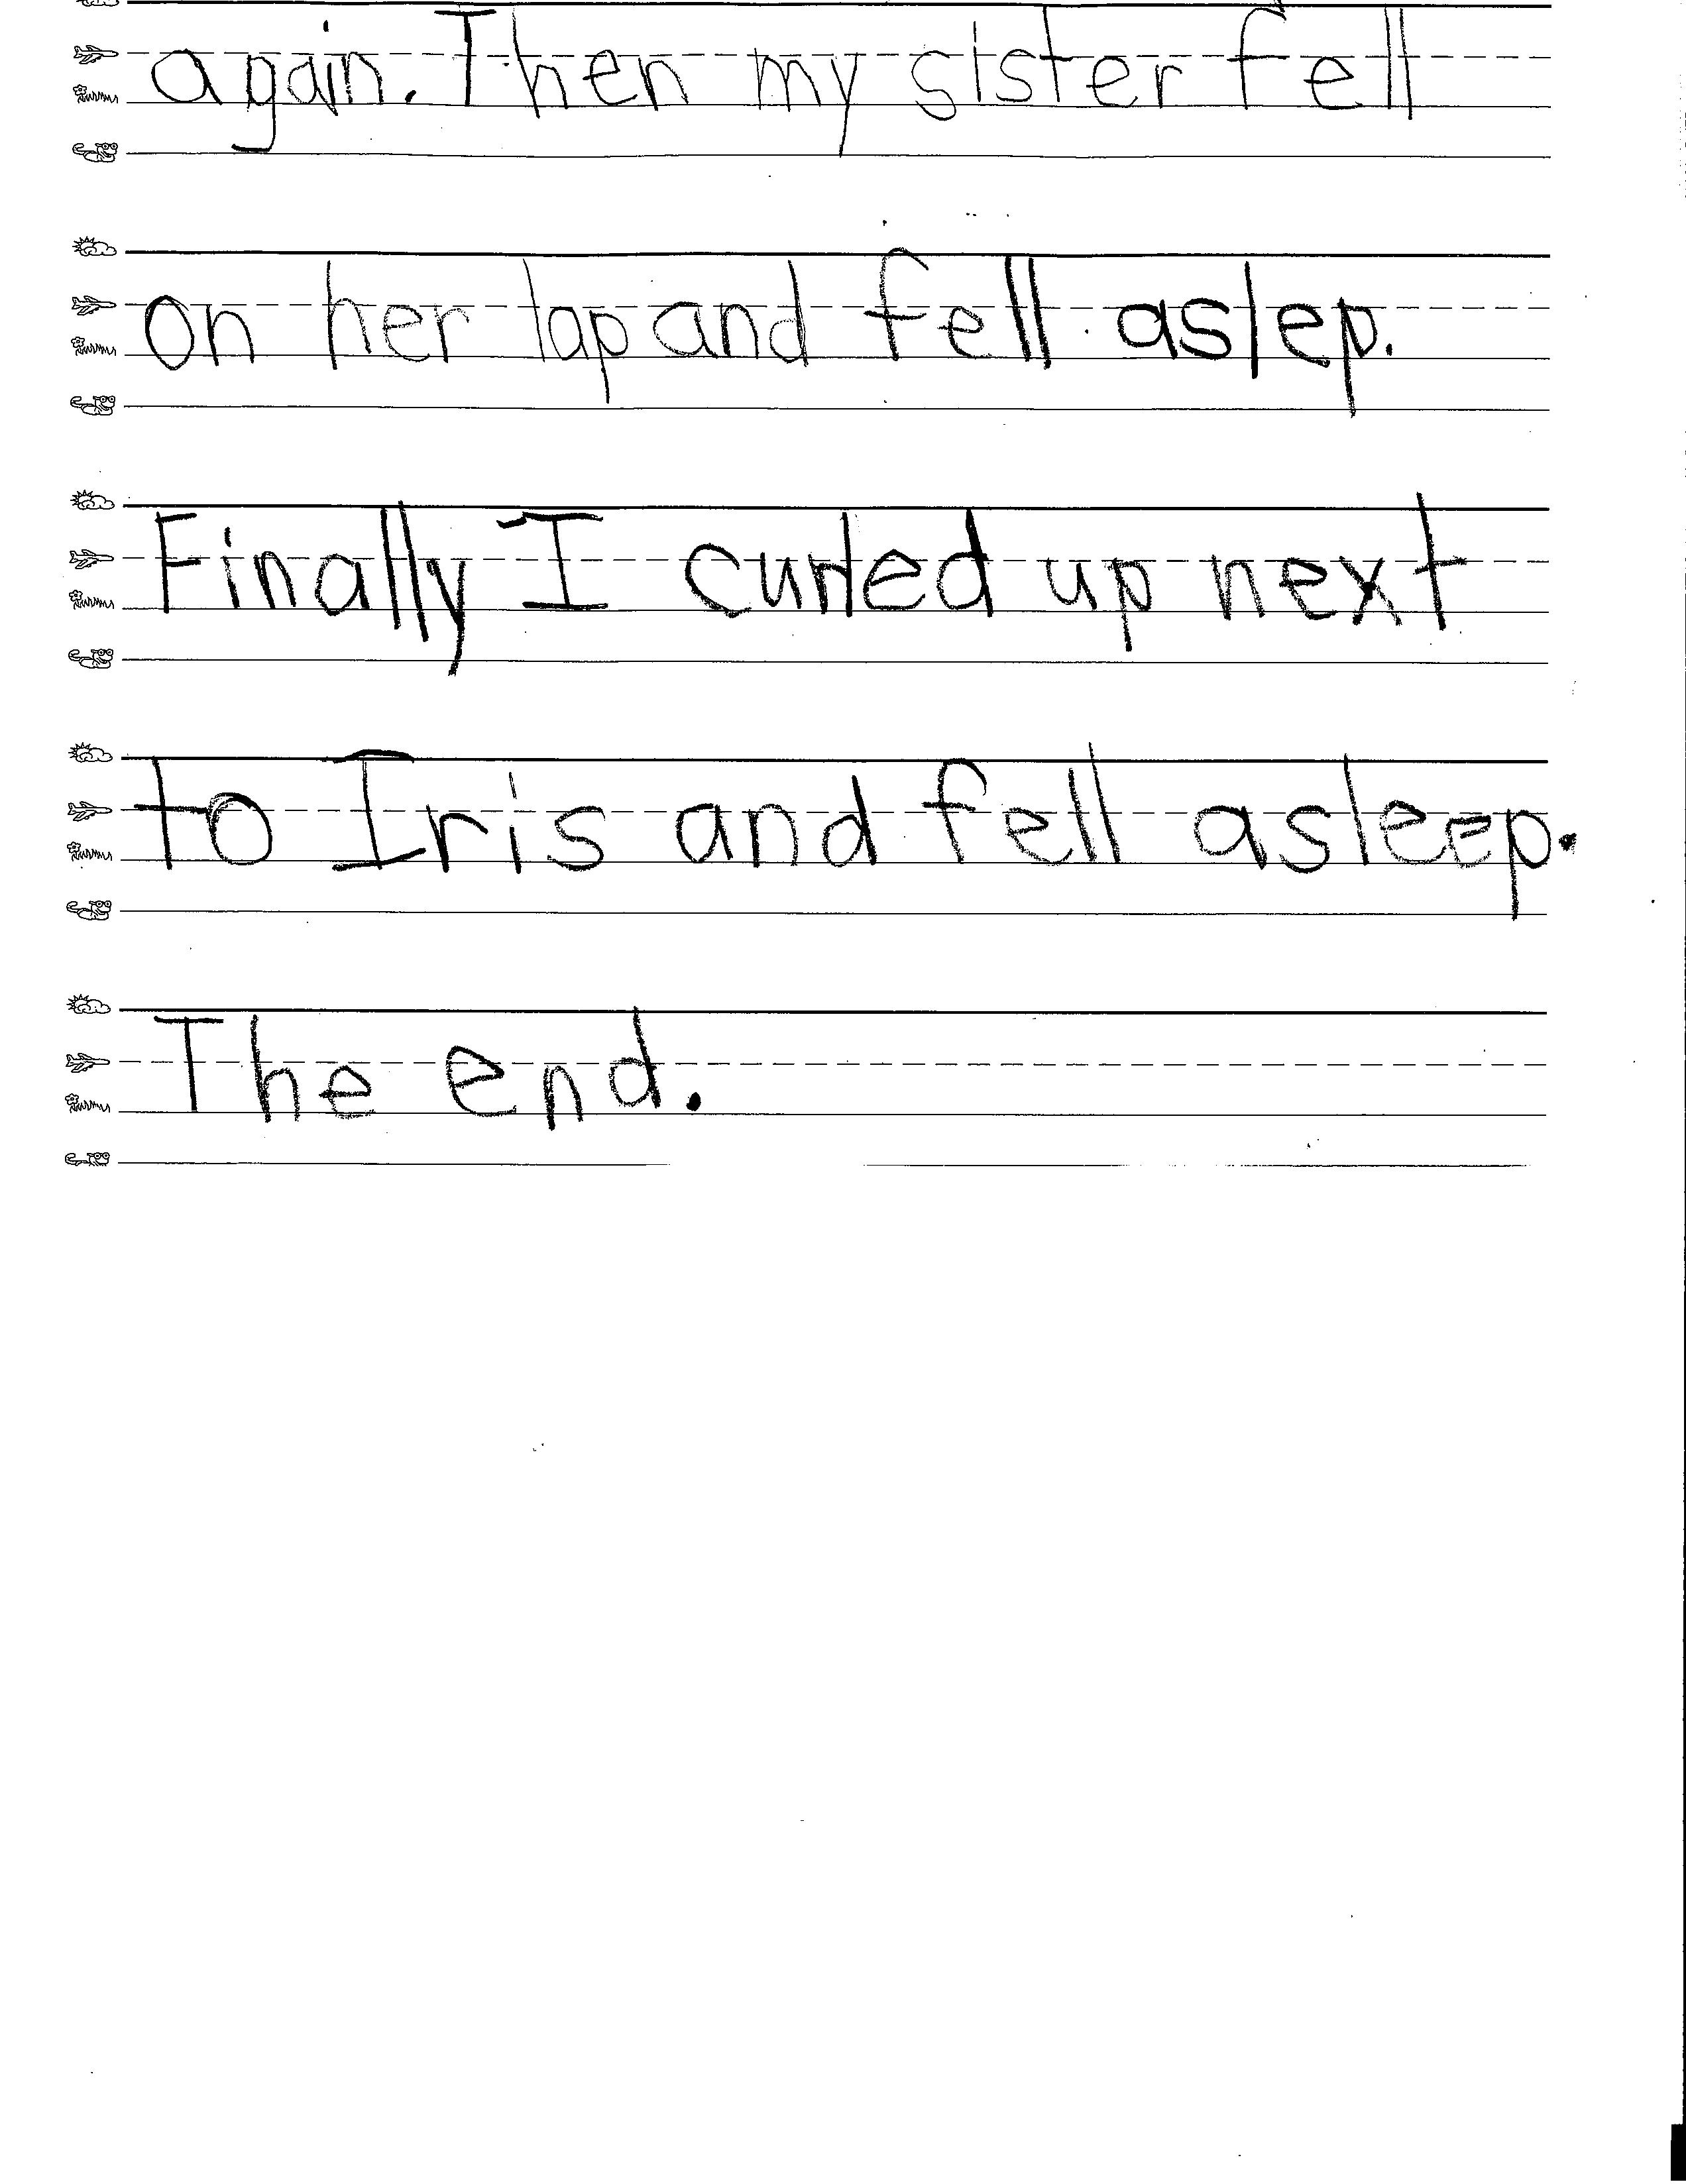 again. Then my sister fell
on her lap and fell aslep.
Finally I curled up next
to Iris and fell asleep.
The end.